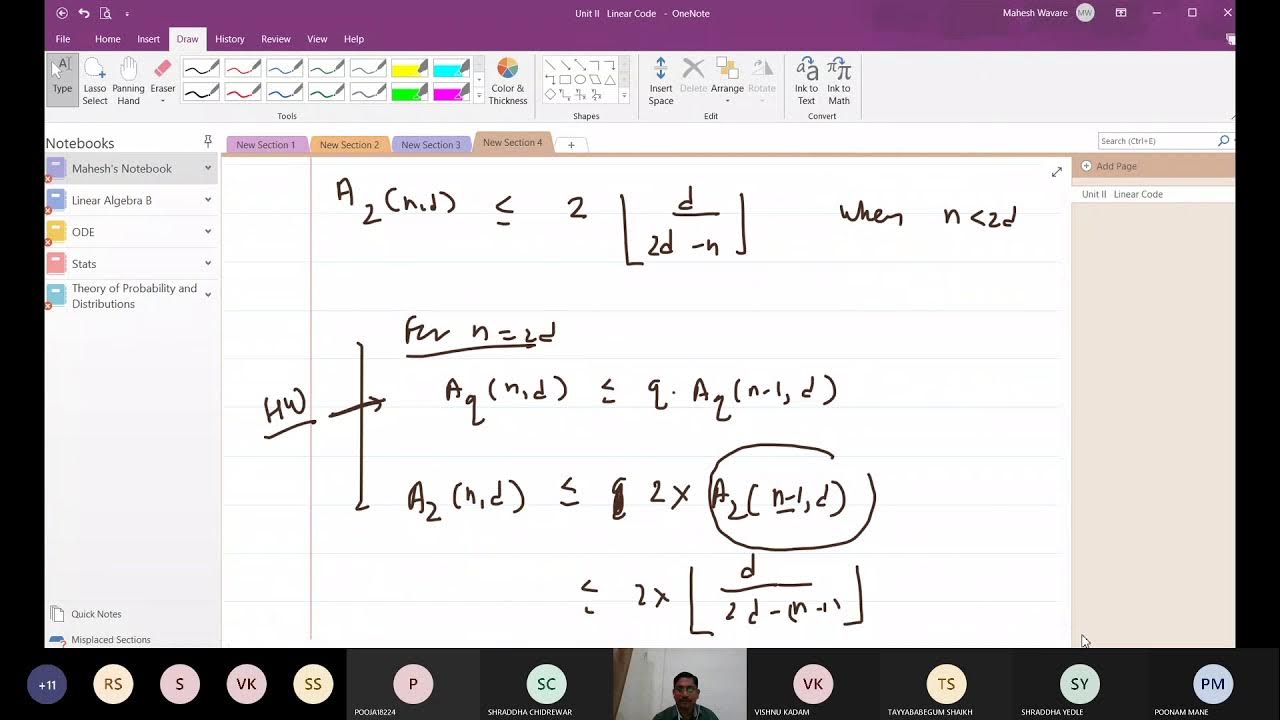 Unit II Linear Code - OneNote
Mahesh Wavare MW
File Home Insert Draw History Review View Help
Type
Lasso Select
Panning Hand
Eraser
Color & Thickness
Insert Space
Delete
Arrange
Rotate
Ink to Text
Ink to Math
Tools Shapes Edit Convert
Notebooks
New Section 1 New Section 2 New Section 3 New Section 4 +
Search (Ctrl+E)
Mahesh's Notebook
Linear Algebra B
ODE
Stats
Theory of Probability and Distributions
Add Page
Unit II Linear Code
A₂(n,d) ≤ 2 ⌊d/(2d-n)⌋ when n<2d
For n=2d
HW
A_q(n,d) ≤ q. A_q(n-1,d)
A₂(n,d) ≤ 2× A₂(n-1,d)
≤ 2× ⌊d/(2d-(n-1))⌋
Quick Notes
Misplaced Sections
+11 RS S VK SS P SC VK TS SY PM
POOJA18224 SHRADDHA CHIDREWAR VISHNU KADAM TAYYABABEGUM SHAIKH SHRADDHA YEDLE POONAM MANE